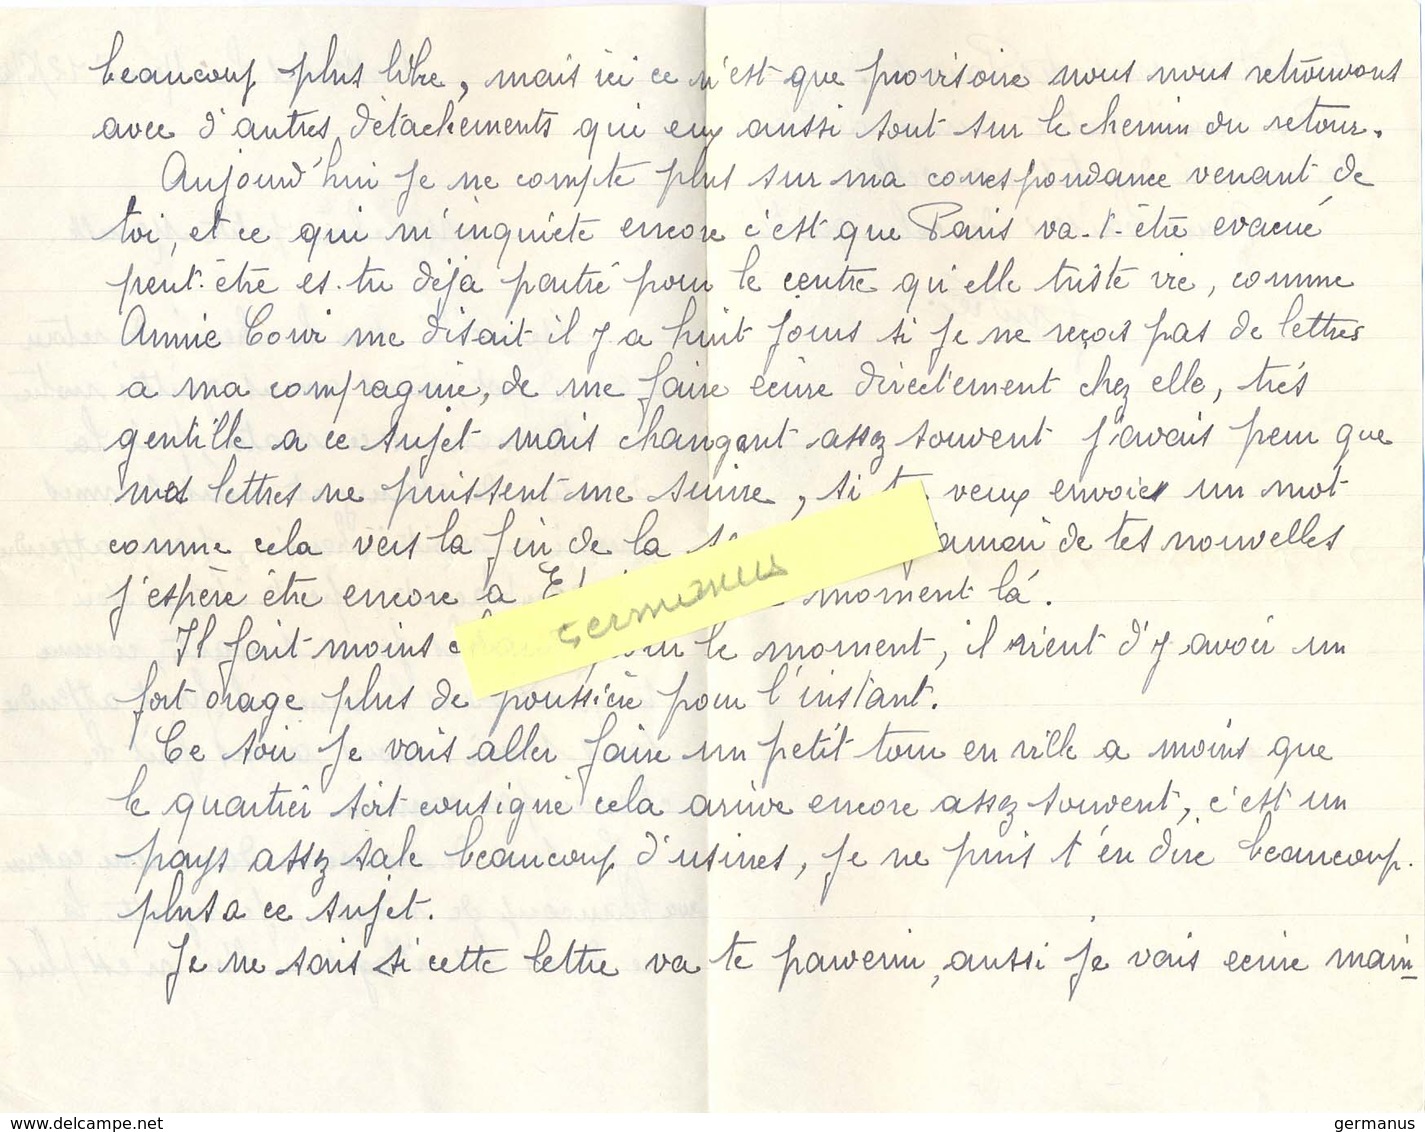 beaucoup plus libre, mais ici ce n'est que provisoire nous nous retrouvons
avec d'autres détachements qui eux aussi sont sur le chemin du retour.
Aujourd'hui je ne compte plus sur ma correspondance venant de
toi, et ce qui m'inquiète encore c'est que Paris va-t-être evacué
peut-être es-tu déja partie pour le centre qu'elle triste vie, comme
Annie me disait il y a huit jours si je ne reçois pas de lettres
a ma compagnie, de me faire ecrire directement chez elle, très
gentille a ce sujet mais changeant assez souvent j'avais peur que
mes lettres ne puissent me suivre, si veux envoies un mot
comme cela vers la fin de la de tes nouvelles
j'espère être encore a moment là.
Il fait moins le moment, il vient d'y avoir un
fort orage plus de poussière pour l'instant.
Ce soir je vais aller faire un petit tour en ville a moins que
le quartier soit consigné cela arrive encore assez souvent, c'est un
pays assez sale beaucoup d'usines, je ne puis t'en dire beaucoup
plus a ce sujet.
Je ne sais si cette lettre va te parvenir, aussi je vais ecrire main-
germanus
www.delcampe.net
germanus